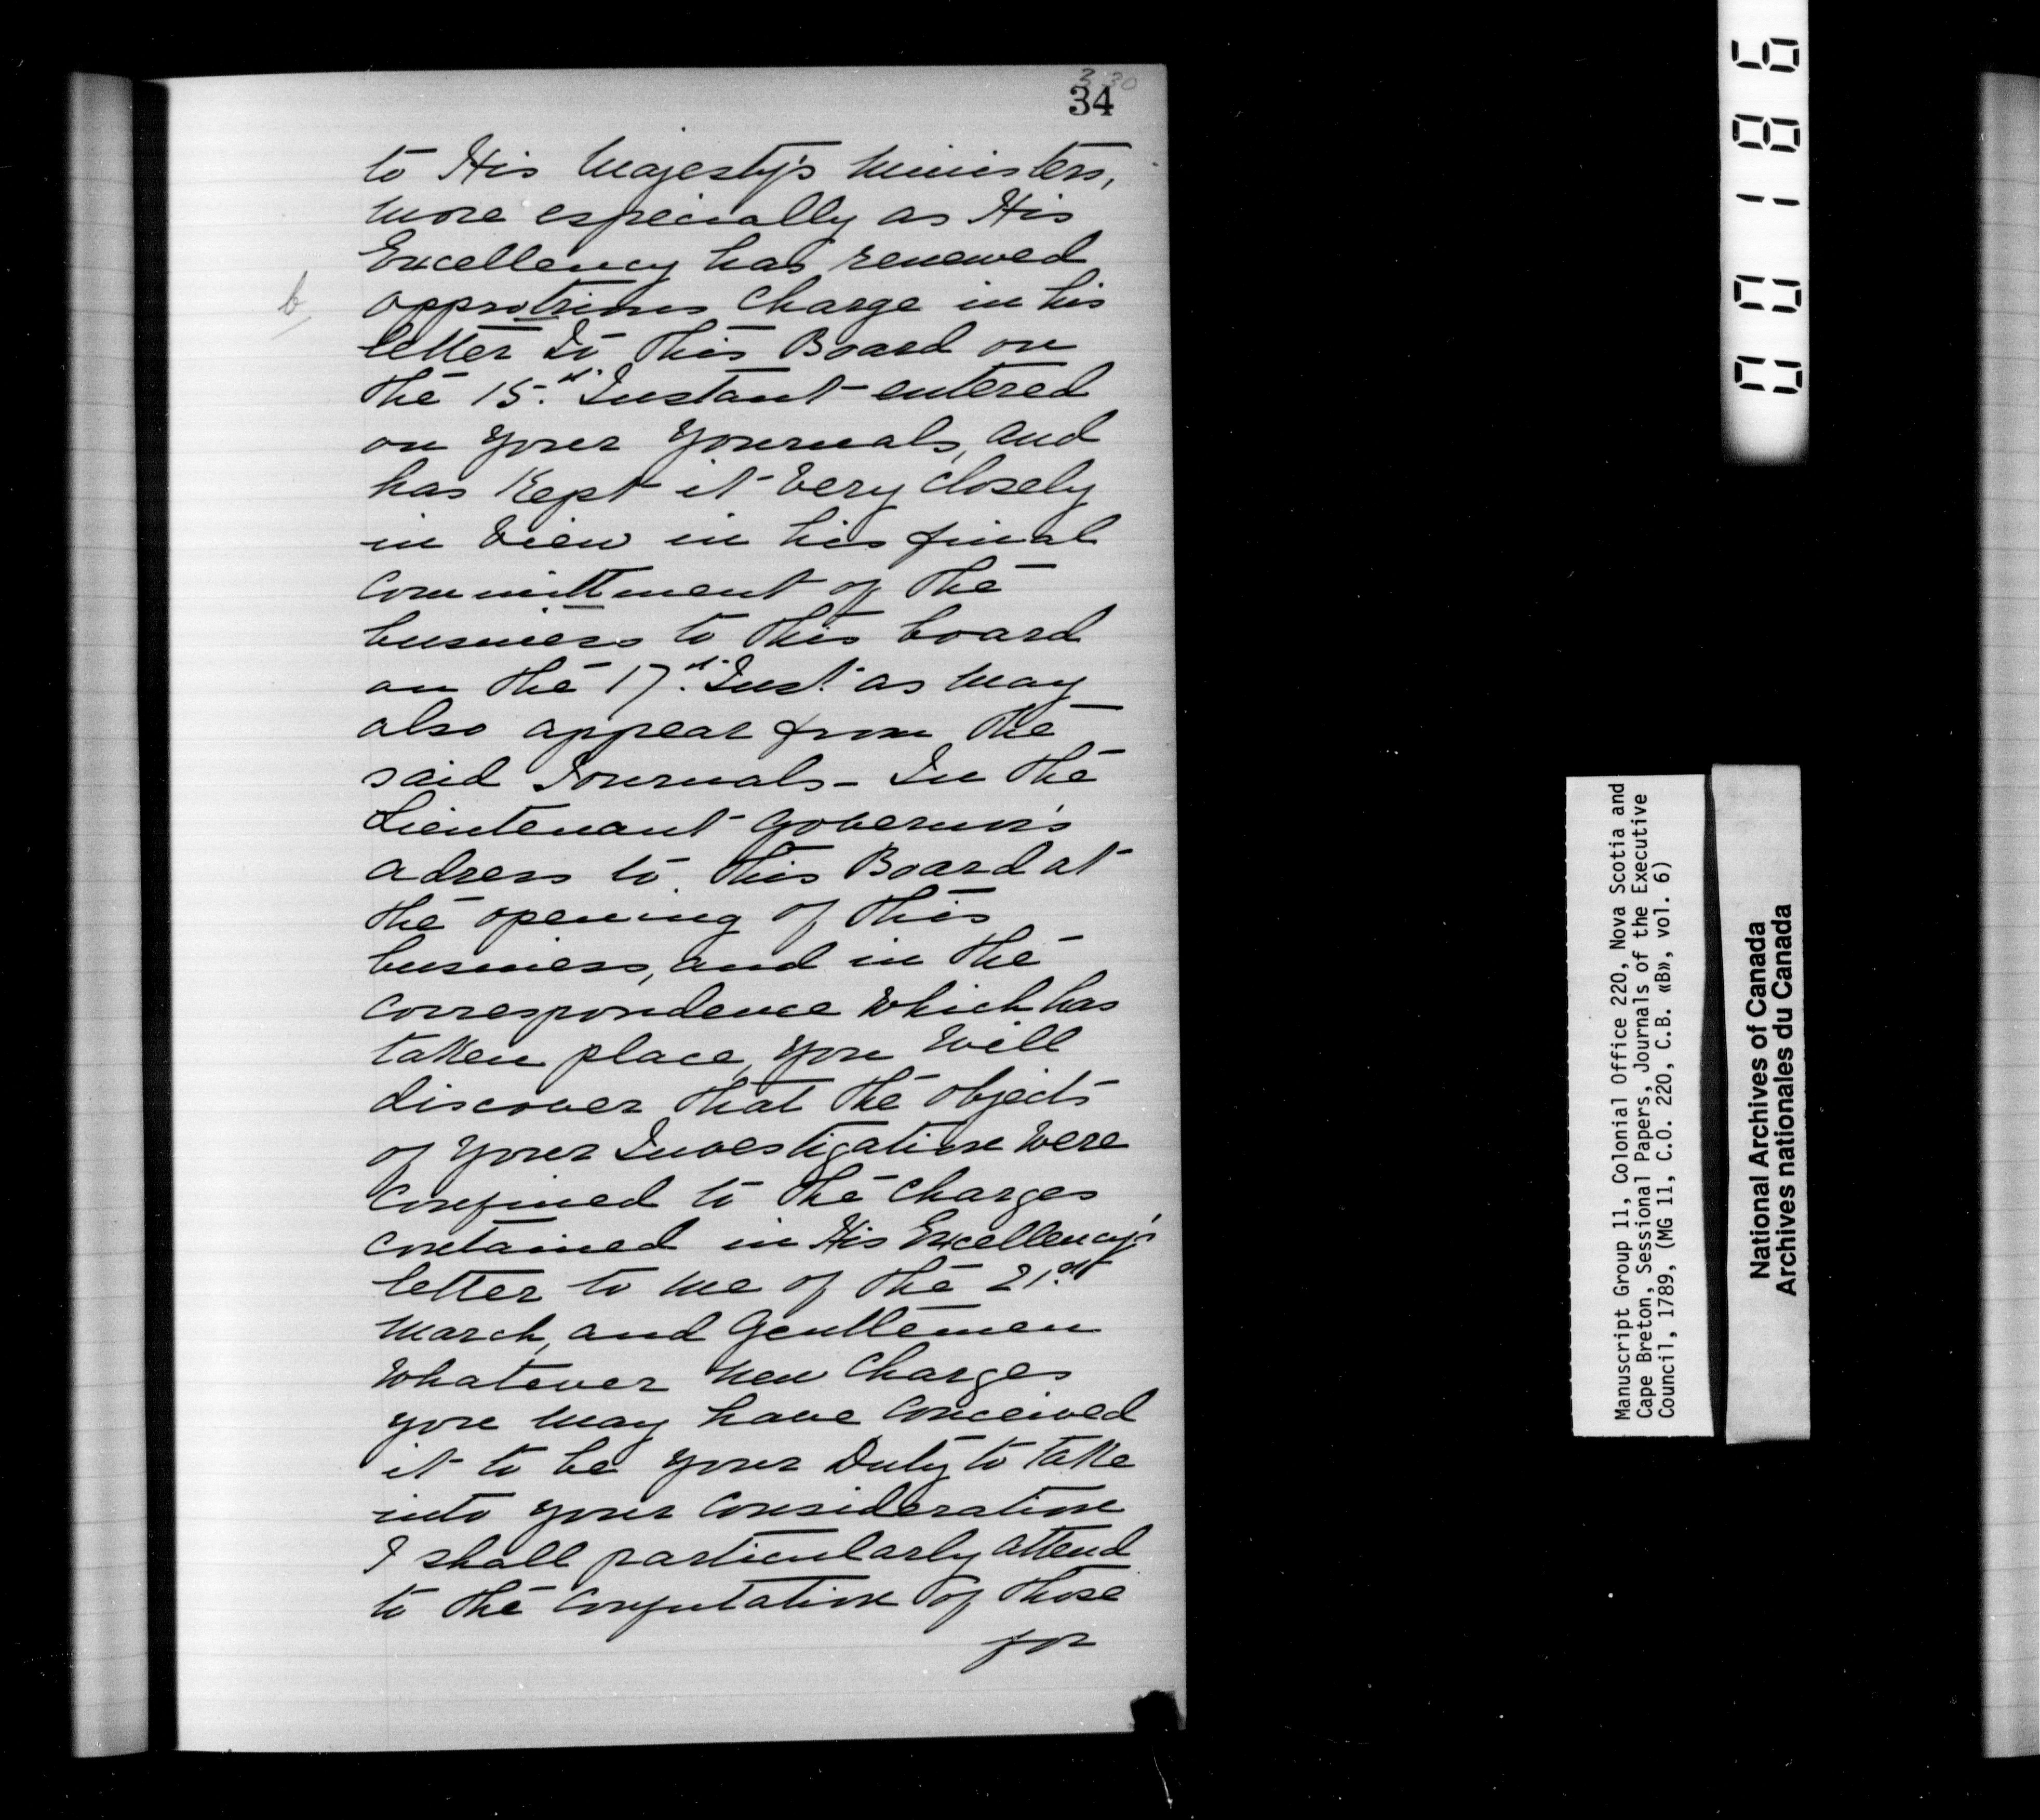 330
34
to His Majesty's Ministers,
more especially as His
Excellency has renewed
b
opprotrious Charge in his
letter to this Board on
the 15.th Instant entered
on your Journals, and
has Kept it very closely
in view in his final
committment of the
business to this board
on the 17.th Inst. as may
also appear from the
said Journals - In the
Lieutenant Governor's
adress to this Board at
the opening of this
business, and in the
correspondence which has
taken place, you will
discover that the objects
of your Investigation were
confined to the charges
contained in His Excellency's
letter to me of the 21.st
March, and Gentlemen
whatever new Charges
you may have conceived
it to be your Duty to take
into your consideration
I shall particularly attend
to the confutation of those
for
00186
Manuscript Group 11, Colonial Office 220, Nova Scotia and
Cape Breton, Sessional Papers, Journals of the Executive
Council, 1789, (MG 11, C.O. 220, C.B. «B», vol. 6)
National Archives of Canada
Archives nationales du Canada